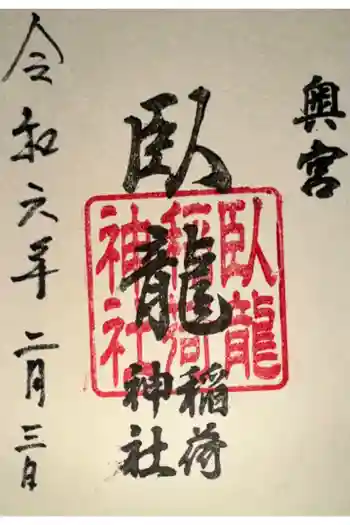 奥宮
臥龍
稲荷
神社
令和六年二月三日
臥龍
稲荷
神社